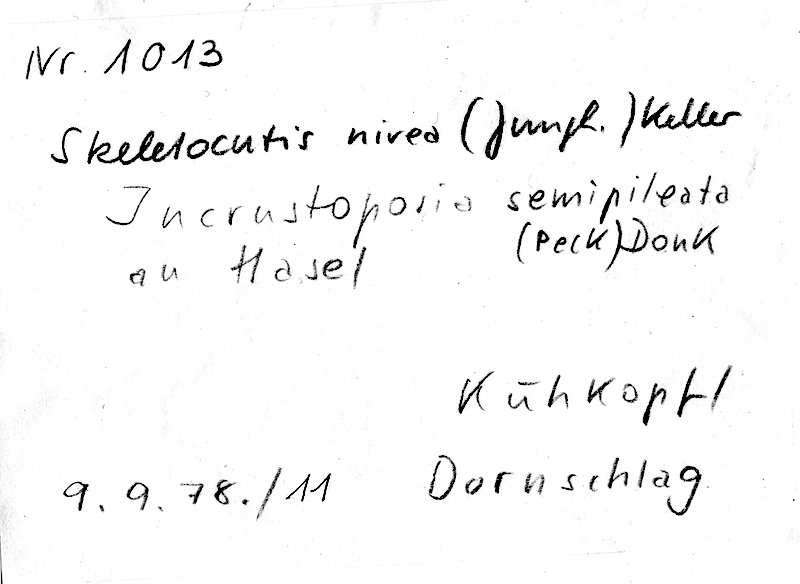 Nr. 1013
Skeletocutis nivea (Jungh.) Keller
Incrustoporia semipileata
(Peck) Donk
an Hasel
Kühkopf /
9. 9. 78. / 11 Dornschlag